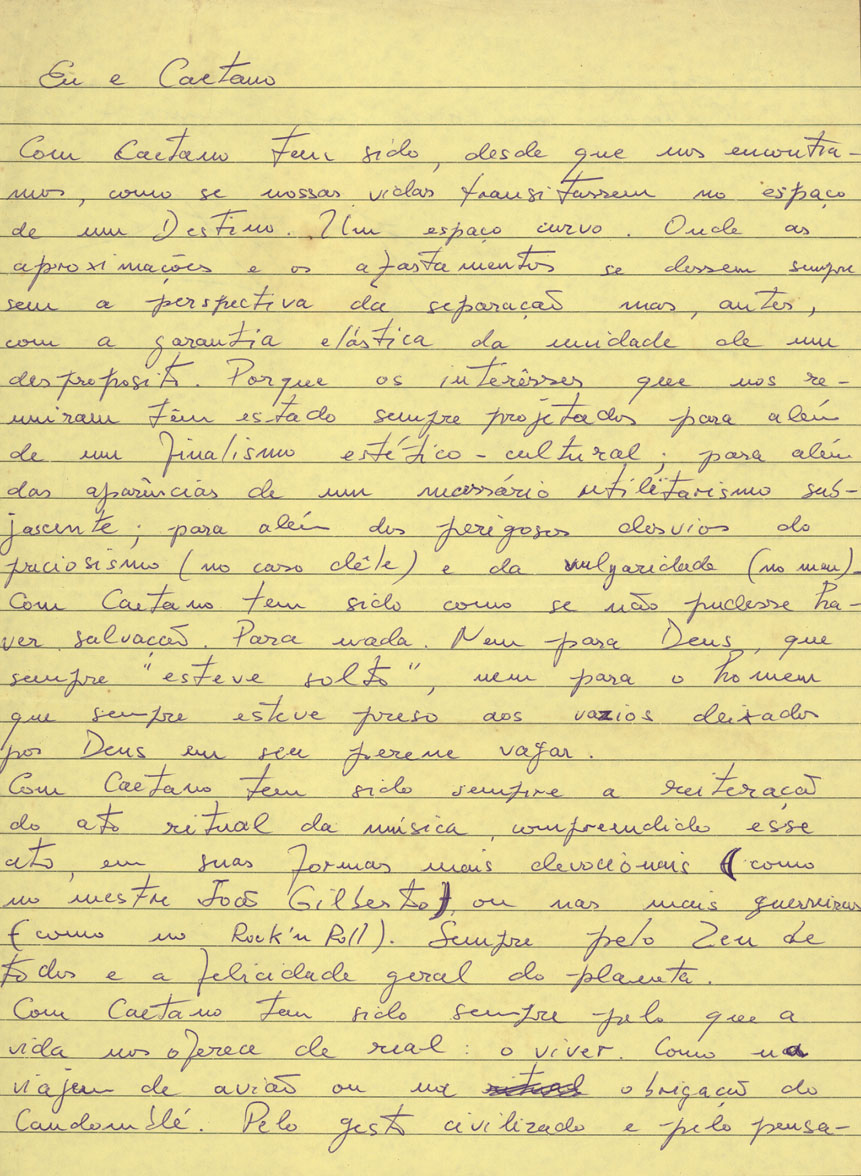 Eu e Caetano
Com Caetano tem sido, desde que nos encontra-
mos, como se nossas vidas transitassem no espaço
de um Destino. Um espaço curvo. Onde as
aproximações e os afastamentos se dessem sempre
sem a perspectiva da separação mas, antes,
com a garantia elástica da unidade de um
desproposito. Porque os interêsses que nos re-
uniram têm estado sempre projetados para além
de um finalismo estético-cultural; para além
das aparências de um necessário utilitarismo sub-
jascente; para além dos perigosos desvios do
preciosismo (no caso dêle) e da vulgaridade (no meu).
Com Caetano tem sido como se não pudesse ha-
ver salvação. Para nada. Nem para Deus, que
sempre "esteve solto", nem para o homem
que sempre esteve preso aos vazios deixados
por Deus em seu perene vagar.
Com Caetano tem sido sempre a reiteração
do ato ritual da música, compreendido esse
ato, em suas formas mais devocionais (como
no mestre João Gilberto), ou nas mais guerreiras
(como no Rock'n Roll). Sempre pelo Zen de
todos e a felicidade geral do planeta.
Com Caetano tem sido sempre pelo que a
vida nos oferece de real: o viver. Como na
viajem de avião ou na obrigação do
Candomblé. Pelo gesto civilizado e pelo pensa-